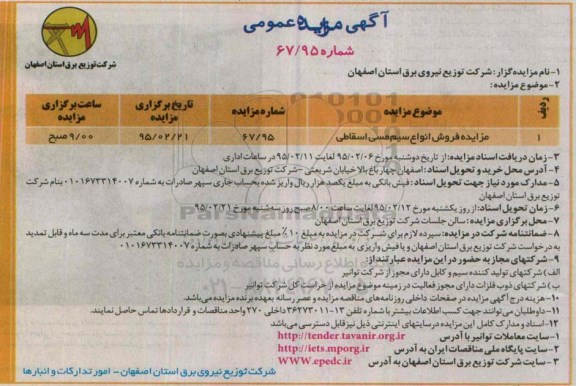 آگهی مزایده عمومی
شماره ۶۷/۹۵
شرکت توزیع برق استان اصفهان
۱- نام مزایده گزار: شرکت توزیع نیروی برق استان اصفهان
۲- موضوع مزایده:
ردیف موضوع مزایده شماره مزایده تاریخ برگزاری مزایده ساعت برگزاری مزایده
۱ مزایده فروش انواع سیم مسی اسقاطی ۶۷/۹۵ ۹۵/۰۲/۲۱ ۹/۰۰ صبح
۳- زمان دریافت اسناد مزایده: از تاریخ دوشنبه مورخ ۹۵/۰۲/۰۶ لغایت ۹۵/۰۲/۱۱ در ساعات اداری
۴- آدرس محل خرید و تحویل اسناد: اصفهان چهارباغ بالا خیابان شریعتی - شرکت توزیع برق استان اصفهان
۵- مدارک مورد نیاز جهت تحویل اسناد: فیش بانکی به مبلغ یکصد هزار ریال واریز شده بحساب جاری سپهر صادرات به شماره ۰۱۰۱۶۷۳۳۱۴۰۰۷ بنام شرکت
توزیع برق استان اصفهان
۶- زمان تحویل اسناد: از روز یکشنبه مورخ ۹۵/۰۲/۱۲ لغایت ساعت ۸/۰۰ صبح روز سه شنبه مورخ ۹۵/۰۲/۲۱
۷- محل برگزاری مزایده: سالن جلسات شرکت توزیع برق استان اصفهان
۸- ضمانتنامه شرکت در مزایده: سپرده لازم برای شرکت در مزایده به مبلغ ۱۰٪ مبلغ پیشنهادی بصورت ضمانتنامه بانکی معتبر برای مدت سه ماه و قابل تمدید
به درخواست شرکت توزیع برق استان اصفهان و یا فیش واریزی به مبلغ مورد نظر به حساب سپهر صادرات به شماره ۰۱۰۱۶۷۳۳۱۴۰۰۷
۹- شرکتهای مجاز به حضور در این مزایده عبارتند از:
الف) شرکتهای تولید کننده سیم و کابل دارای مجوز از شرکت توانیر
ب) شرکتهای ذوب فلزات دارای مجوز فعالیت در زمینه موضوع مزایده از حراست کل شرکت توانیر
۱۰- هزینه درج آگهی مزایده در صفحات داخلی روزنامه های مناقصه مزایده و عصر رسانه بعهده برنده مزایده می باشد.
۱۱- داوطلبان می توانند جهت کسب اطلاعات بیشتر با شماره تلفن ۱۳-۳۶۲۷۳۰۱۱ داخلی ۲۷۰ واحد مناقصات و قراردادها تماس حاصل نمایند.
۱۲- اسناد و مدارک کامل این مزایده در سایتهای اینترنتی ذیل نیز قابل دسترسی می باشد
۱- سایت معاملات توانیر با آدرس http://tender.tavanir.org.ir
۲- سایت پایگاه ملی مناقصات ایران به آدرس http://iets.mporg.ir
۳- سایت شرکت توزیع برق استان اصفهان به آدرس WWW.epedc.ir
شرکت توزیع نیروی برق استان اصفهان - امور تدارکات و انبارها